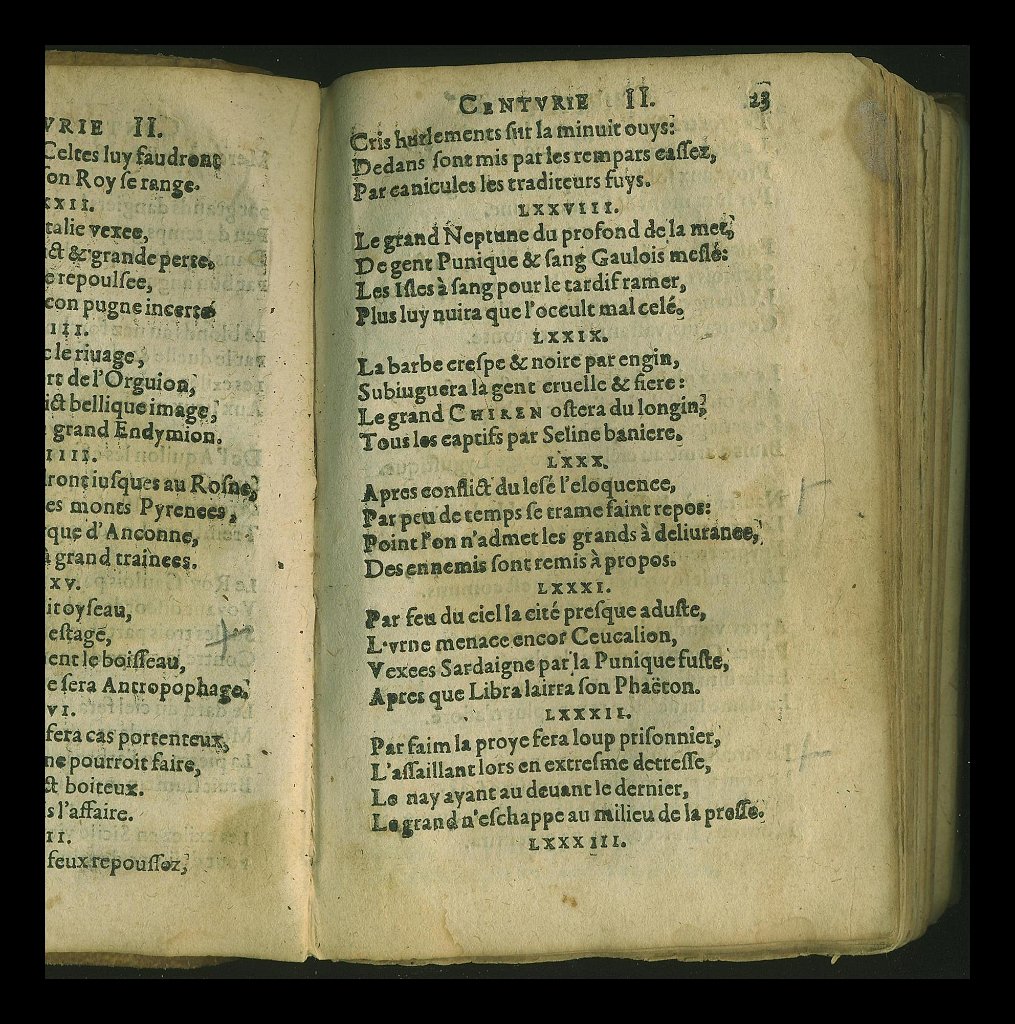 VRIE II.
Celtes luy faudront
on Roy se range.
XXII.
talie vexee,
ict & grande perte,
e repoulsee,
con pugne incerte
IIII.
c le riuage,
rt de l'Orguion,
ict bellique image,
grand Endymion.
IIIII.
ront iusques au Rosne,
es monts Pyrenees,
rque d'Anconne,
à grand traînees.
XV.
it oyseau,
estage,
ent le boisseau,
e sera Antropophage.
VI.
fera cas portenteux,
ne pourroit faire,
ct boiteux.
s l'affaire.
II.
feux repoussez,
CENTVRIE II. 23
Cris hurlements sur la minuit ouys:
Dedans sont mis par les rempars cassez,
Par canicules les traditeurs fuys.
LXXVIII.
Le grand Neptune du profond de la mer,
De gent Punique & sang Gaulois meslé:
Les Isles à sang pour le tardif ramer,
Plus luy nuira que l'occult mal celé.
LXXIX.
La barbe crespe & noire par engin,
Subiuguera la gent cruelle & fiere:
Le grand CHIREN ostera du longin,
Tous les captifs par Seline baniere.
LXXX.
Apres conflict du lesé l'eloquence,
Par peu de temps se trame faint repos:
Point l'on n'admet les grands à deliurance,
Des ennemis sont remis à propos.
LXXXI.
Par feu du ciel la cité presque aduste,
L'vrne menace encor Ceucalion,
Vexees Sardaigne par la Punique fuste,
Apres que Libra lairra son Phaëton.
LXXXII.
Par faim la proye fera loup prisonnier,
L'assaillant lors en extresme detresse,
Le nay ayant au deuant le dernier,
Le grand n'eschappe au milieu de la presse.
LXXXIII.